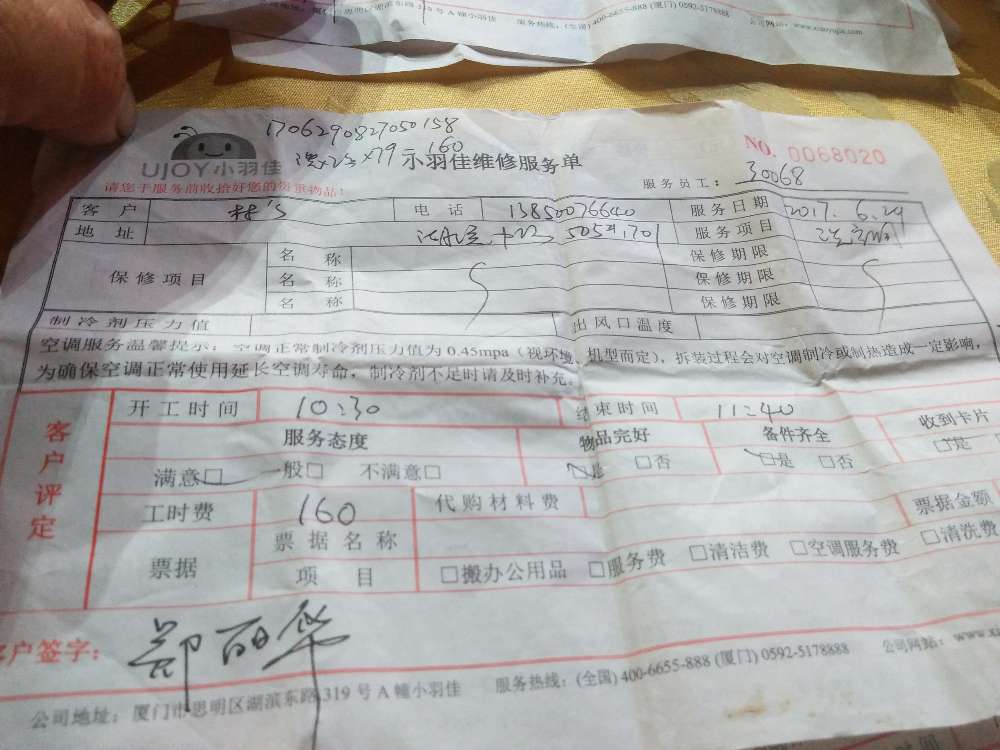 服务热线：(全国) 400-6655-888 (厦门) 0592-5178888
1706290827050158
160
UJOY小羽佳
示羽佳维修服务单
NO. 0068020
请您于服务前收拾好您的贵重物品！
服务员工： 30068
客户 电话 13850076640 服务日期 2017.6.29
地址 服务项目
保修项目 名称 保修期限
名称 保修期限
名称 保修期限
制冷剂压力值 出风口温度
空调服务温馨提示：空调正常制冷剂压力值为0.45mpa（视环境、机型而定），拆装过程会对空调制冷或制热造成一定影响，
为确保空调正常使用延长空调寿命，制冷剂不足时请及时补充。
客户评定
开工时间 10:30 结束时间 11:40
服务态度 物品完好 备件齐全 收到卡片
满意□ 一般□ 不满意□ □是 □否 □是 □否 □是
工时费 160 代购材料费 票据金额
票据 票据名称
项目 □搬办公用品 □服务费 □清洁费 □空调服务费 □清洗费
客户签字： 郑丽华
公司地址：厦门市思明区湖滨东路319号A幢小羽佳 服务热线：(全国) 400-6655-888 (厦门) 0592-5178888 公司网站：